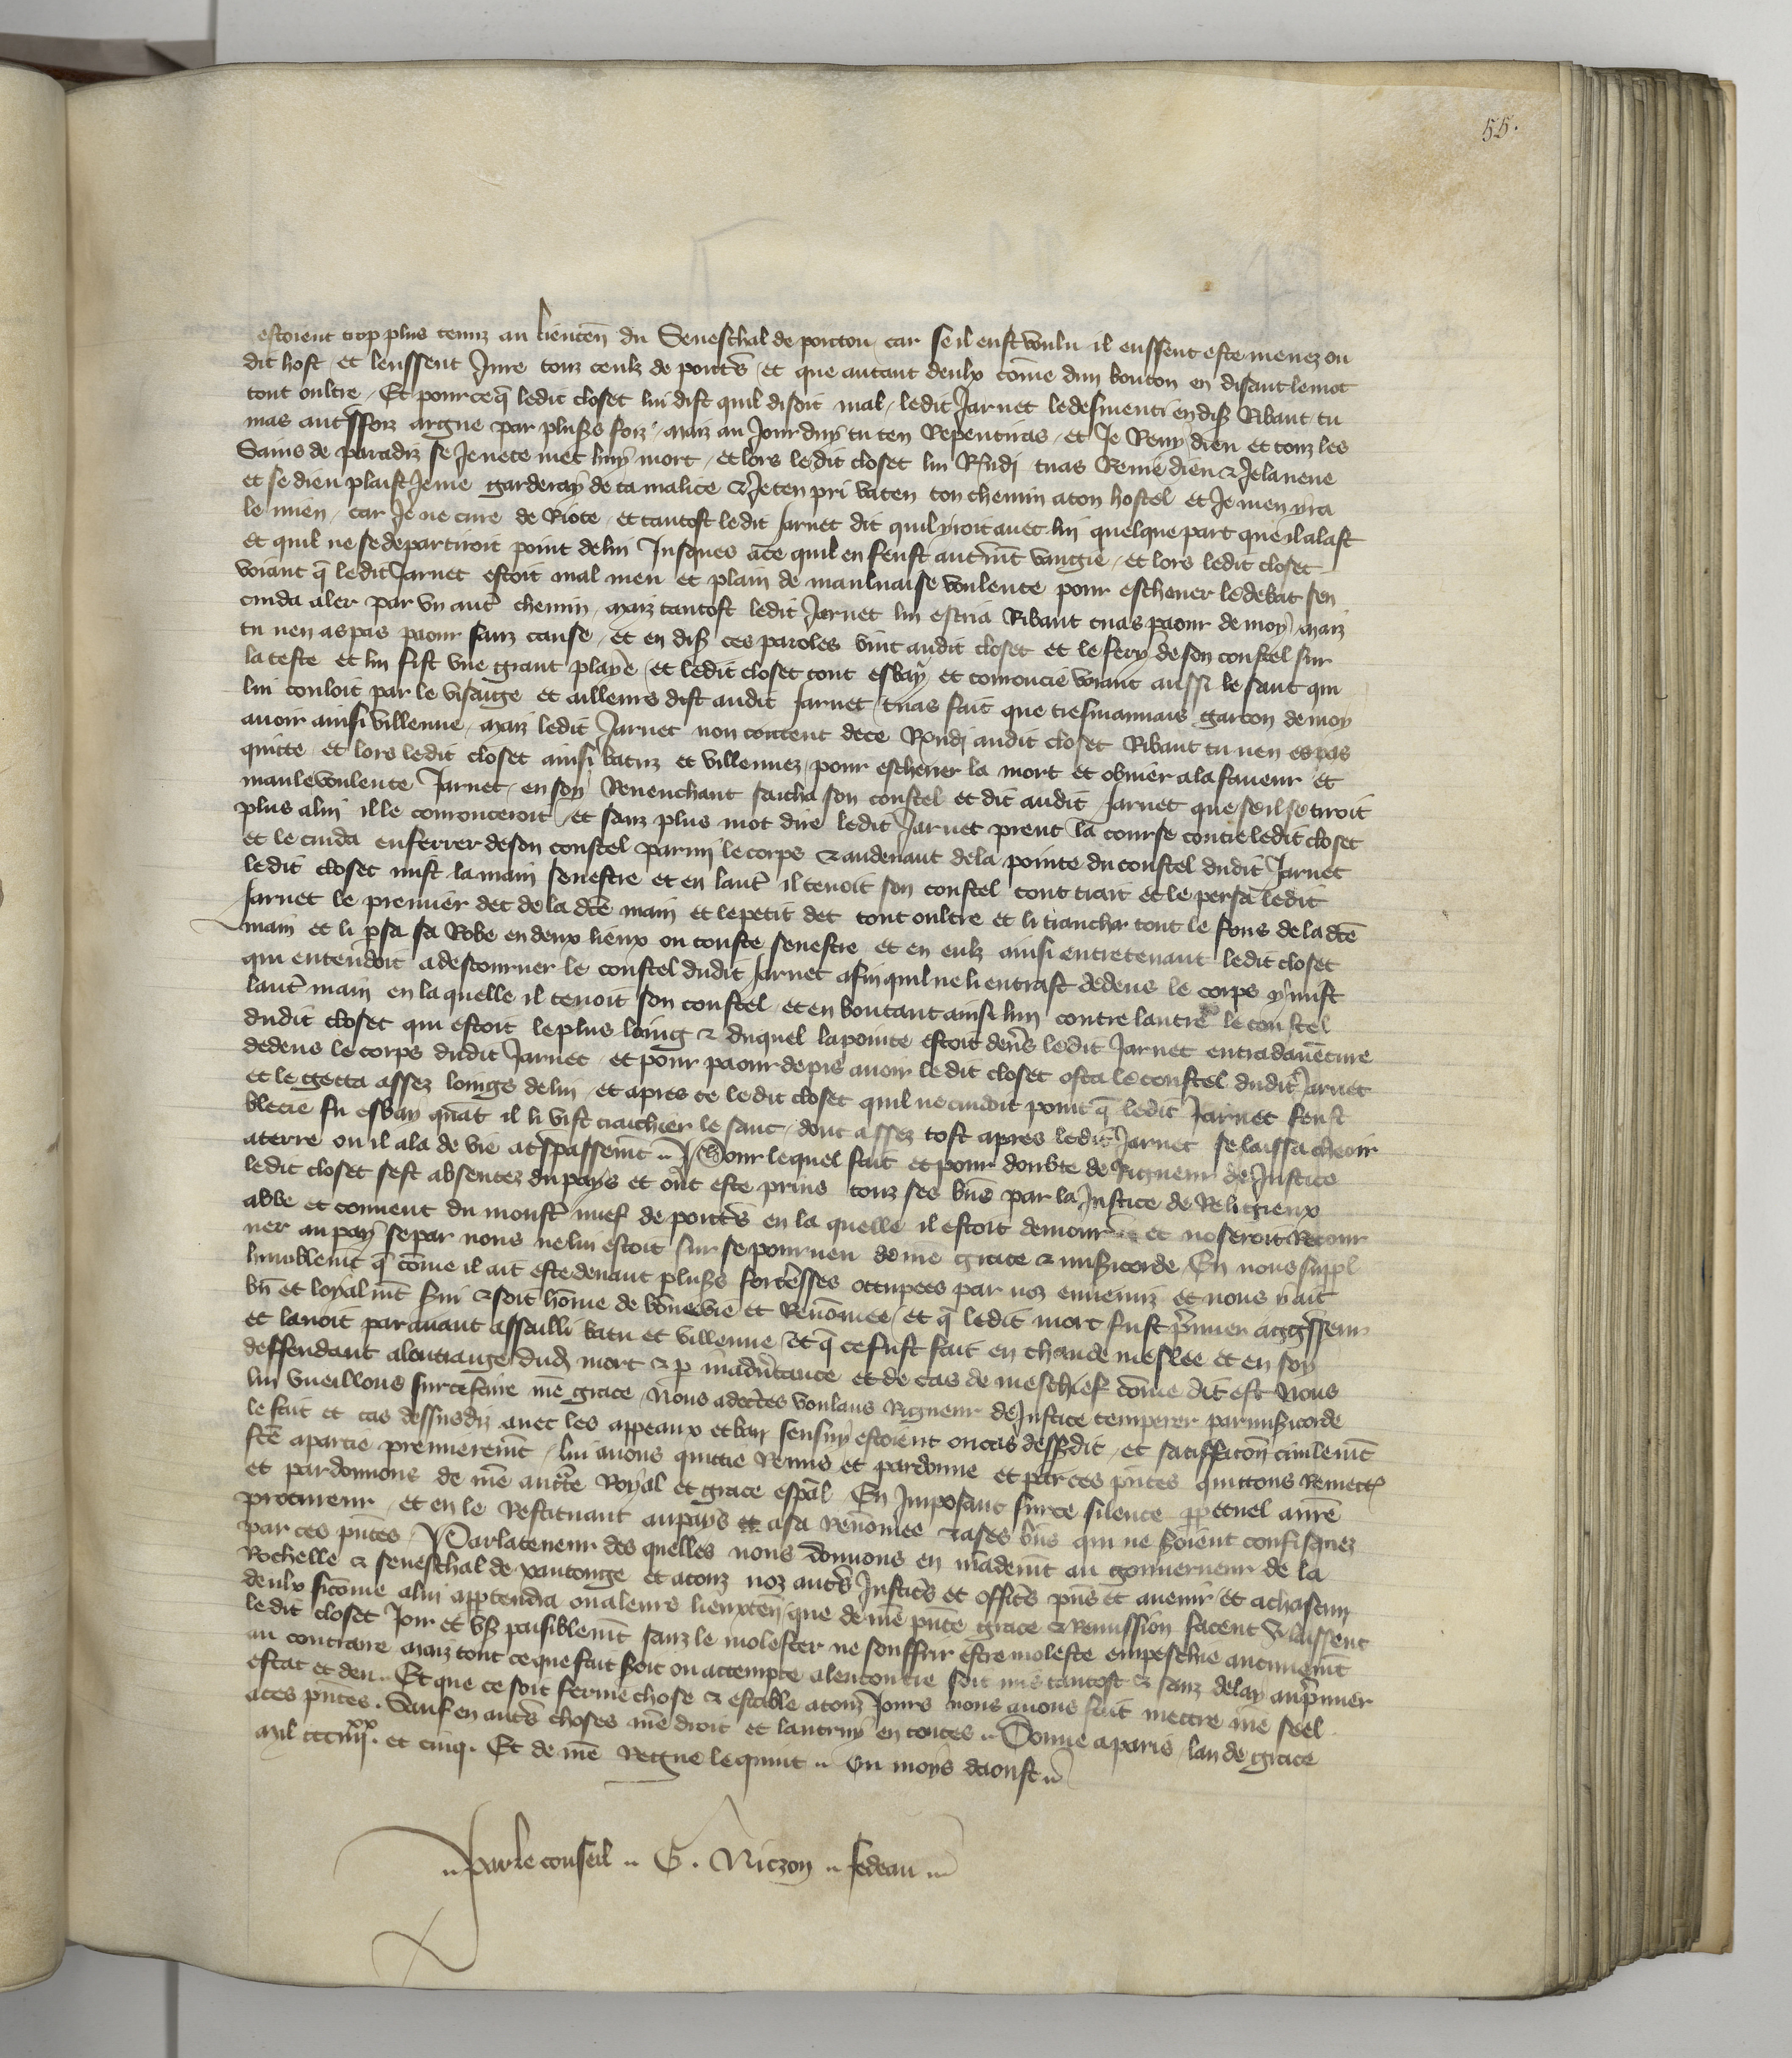 55.
estoient trop plus tenuz au lieuten̄ du Seneschal de poitou car se il eust voulu il eussent este menez ou
dit host et leussent Jure touz ceulz de poict̄s et que autant deulx com̄e dun bouton en disant le mot
tout oultre Et pource q̄ ledit closet lui dist quil disoit mal ledit Jarnet le desmenti en disꝫ Ribaut tu
mas autr̄ffoiz argue par plusrs foiz maiz au Jourduy tu ten Repentiras et Je Reny dieu et touz les
Sains de paradiz se Je ne te met huy mort et lors ledit closet lui Rn̄di tu as Renie dieu & Je laneue
et se dieu plaist Je me garderay de ta malice & Je ten pri vaten ton chemin a ton hostel et Je men yra
le mien car Je ne cure de Riote et tantost ledit Jarnet dit quil yroit avec lui quelque part que il alast
et quil ne se departiroit point de lui Jusques ace quil en feust autrem̄t vangie et lors ledit closet
voiant q̄ ledit Jarnet estoit mal meu et plain de mauluaise voulente pour eschever le debat sen
cuida aler par vn autr̄ chemin maiz tantost ledit Jarnet lui escria Ribaut tu as paour de moy maiz
tu nen as pas paour sanz cause et en disꝫ ces paroles vint audit closet et le fery de son coustel sur
la teste et lui fist vne grant playe et ledit closet tout esbay et corroucie voiant aussi le sanc qui
lui couloit par le visaige et ailleurs dist audit Jarnet tu as fait que tresmauvais garcon de moy
avoir ainsi villenne maiz ledit Jarnet non content de ce Rn̄di audit closet Ribaut tu nen es pas
quitte et lors ledit closet ainsi batuz et villennez pour eschever la mort et obvier a la faveur et
maulevoulente Jarnet en soy Revenchant saicha son coustel et dit audit Jarnet que se il se tiroit
plus a lui il le corrouceroit et sanz plus mot dire ledit Jarnet prent la course contre ledit closet
et le cuida enferrer de son coustel parmi le corps & audevant de la pointe du coustel dudit Jarnet
ledit closet mist la main senestre et en lautr̄ il tenoit son coustel tout trait et le persa ledit
Jarnet le premier det de la dc̄e main et le petit det tout oultre et li trancha tout le fons de la dc̄e
main et li p̱sa sa Robe en deux lieux ou couste senestre et en eulz ainsi entretenant ledit closet
qui entendoit a destourner le coustel dudit Jarnet afin quil ne li entrast dedens le corps y mist
lautr̄ main en la quelle il tenoit son coustel et en boutant ainsi lun contre lautre le coustel
dudit closet qui estoit le plus loing & duquel la pointe estoit dev̄s ledit Jarnet entra daventure
dedens le corps dudit Jarnet et pour paour de pis avoir ledit closet osta le coustel dudit Jarnet
et le getta assez loings de lui et apres ce ledit closet quil ne cuidoit point q̄ ledit Jarnet feust
blecie fu esbay quāt il li vist craichier le sanc dont assez tost apres ledit Jarnet se laissa cheoir
a terre ou il ala de vie a tr̄spassem̄t Pour lequel fait et pour doubte de Rigueur de Justice
ledit closet sest absentez du pays et ont este prins touz ses biēs par la Justice de Religieux
abbe et couvent du monstr̄ nuef de poict̄s en la quelle il estoit demour et noseroit Retour
ner au pays se par nous ne lui estoit sur ce pourveu de n̄re grace & mis̄icorde En nous suppl
humblem̄t q̄ com̄e il ait este devant plusrs forteresses occupees par noz ennemiz et nous y ait
bn̄ et loyalm̄t s̄vi & soit hom̄e de bon̄e vie et Renom̄ee et q̄ ledit mort fust p̄mier aggresseur
et lavoit par avant assailli batu et villenne et q̄ ce fust fait en chaude meslee et en soy
deffendant a loutrance dud̄ mort & p̱ inadvertance et de cas de meschief com̄e dit est Nous
lui vueillons sur ce faire n̄re grace Nous adecertes voulans Rigueur de Justice temperer par mis̄icorde
le fait et cas dessusdiz avec les appeaux et ban sensuy estoient ou cas dessusdit et satiffaccon civilem̄t
fc̄e a partie premierem̄t lui avons quittie Remis et pardonne et par ces p̄ntes quittons Remett̄
et pardonnons de n̄re aucte Royal et grace esp̄al En Imposant sur ce silence p̱petuel a n̄re
procureur et en le Restituant au pays a sa Renom̄ee & a ses biēs qui ne soient confisquez
par ces p̄ntes Par la teneur des quelles nous donnons en mādem̄t au gouverneur de la
Rochelle & seneschal de xantonge et a touz noz autr̄s Justic̄s et offic̄s p̄ns et avenir et a chascun
deulx sicom̄e a lui app̱tendra ou a leurs lieuxten̄ que de n̄re p̄nte grace & Remission facent & laissent
ledit closet Joir et usꝫ paisiblem̄t sanz le molester ne souffrir estre moleste empeschie aucunem̄t
au contraire maiz tout ce que fait soit ou attempte a lencontre soit mis tantost & sanz delay au p̄mier
estat et deu Et que ce soit ferme chose & estable a touz Jours nous avons fait mettre n̄re seel
a ces p̄ntes. Sauf en autr̄s choses n̄re droit et lautruy en toutes Donne a paris lan de grace
Mil ccc iiijxx. et cinq. Et de n̄re Regne le quint Ou moys daoust
Par le conseil G. Niczon fedeau